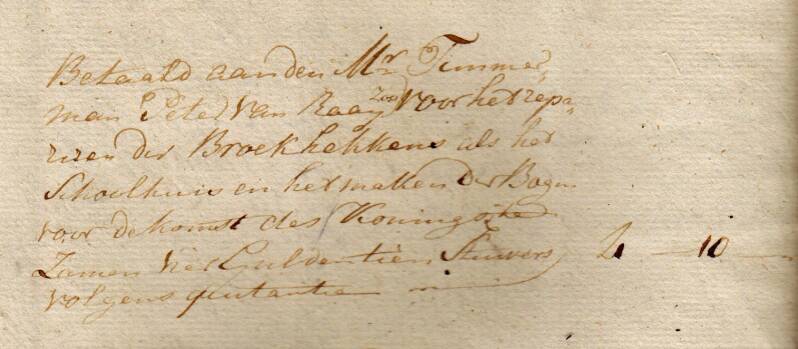 Betaald aan den Mr Timmer„
man Peter van Raay Zoo voor het repa„
reren der Broekhekkens als het
Schoolhuis en het maken der Bogen
voor de komst des Konings te
Zamen vier Gulden tien Stuivers 4 — 10 —
volgens quitantie